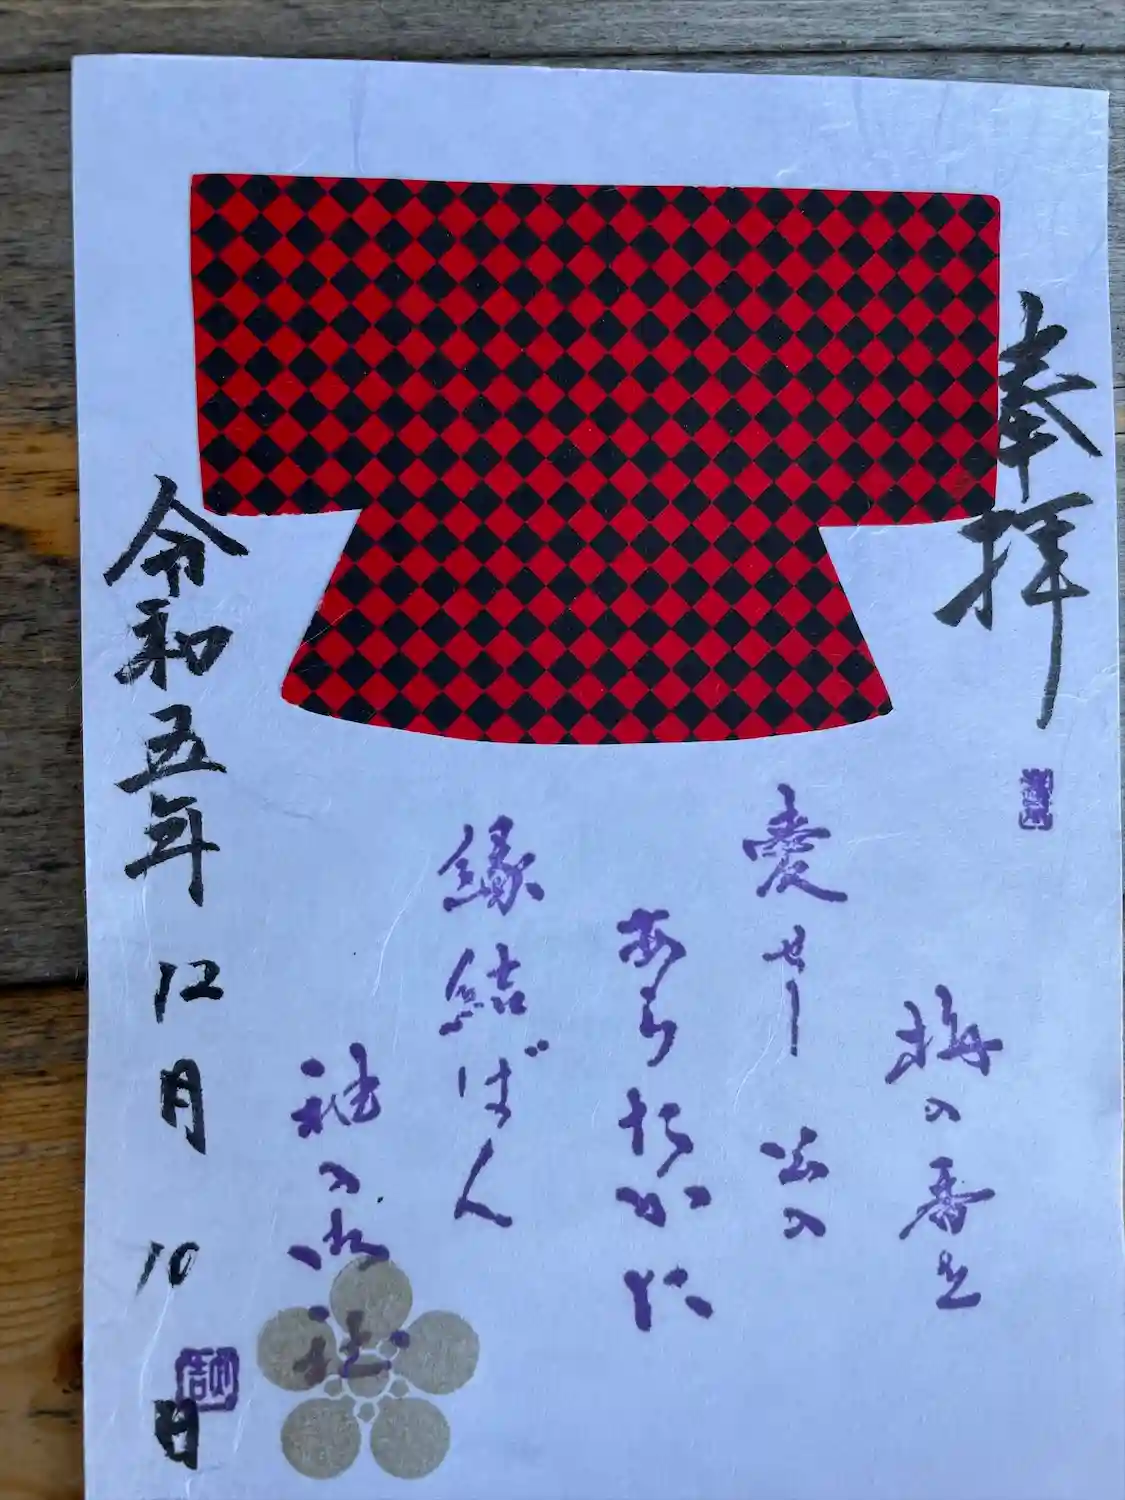 奉拝
梅の香を
愛せし公の
あらたかに
縁結ばん
神の御社
令和五年 12月 10日